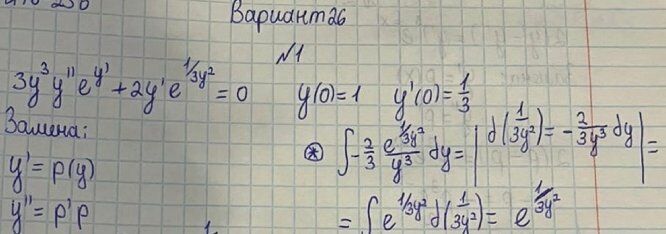 Вариант 26
№1
3y³y''e^{y'} + 2y'e^{1/3y²} = 0 y(0)=1 y'(0)=1/3
Замена:
y' = p(y)
y'' = p'p
⊛ ∫ -2/3 e^{1/3y²}/y³ dy = | d(1/3y²) = -2/3y³ dy | =
= ∫ e^{1/3y²} d(1/3y²) = e^{1/3y²}